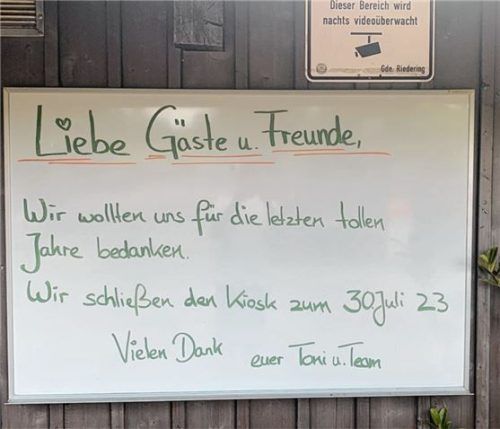 Dieser Bereich wird
nachts videoüberwacht
Gde. Riedering
Liebe Gäste u. Freunde,
Wir wollten uns für die letzten tollen
Jahre bedanken.
Wir schließen den Kiosk zum 30 Juli 23
Vielen Dank euer Toni u. Team